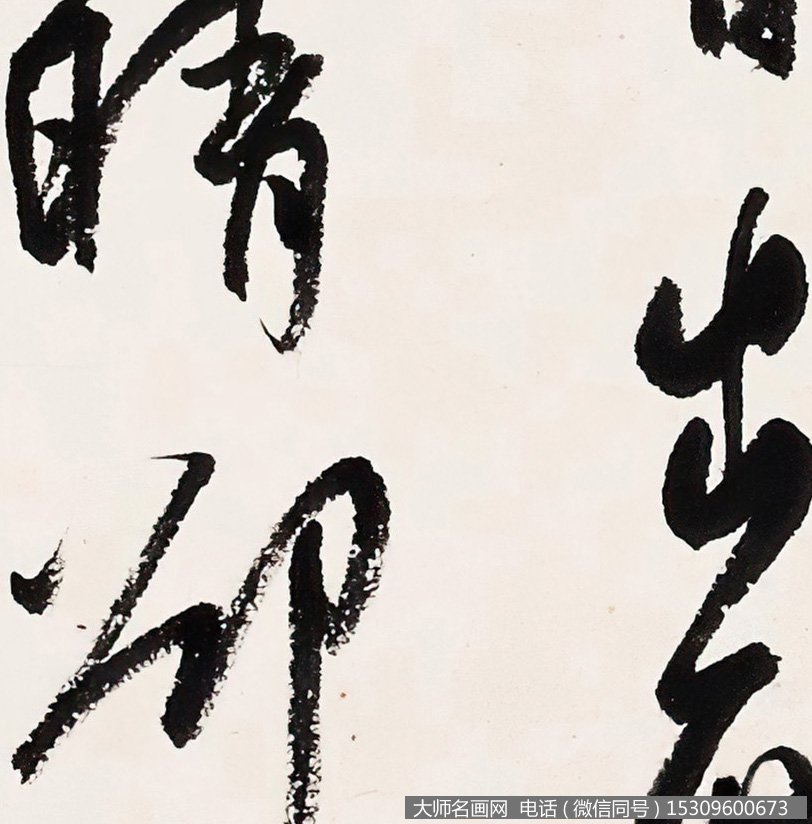 日出西
晴却
大师名画网 电话（微信同号）15309600673